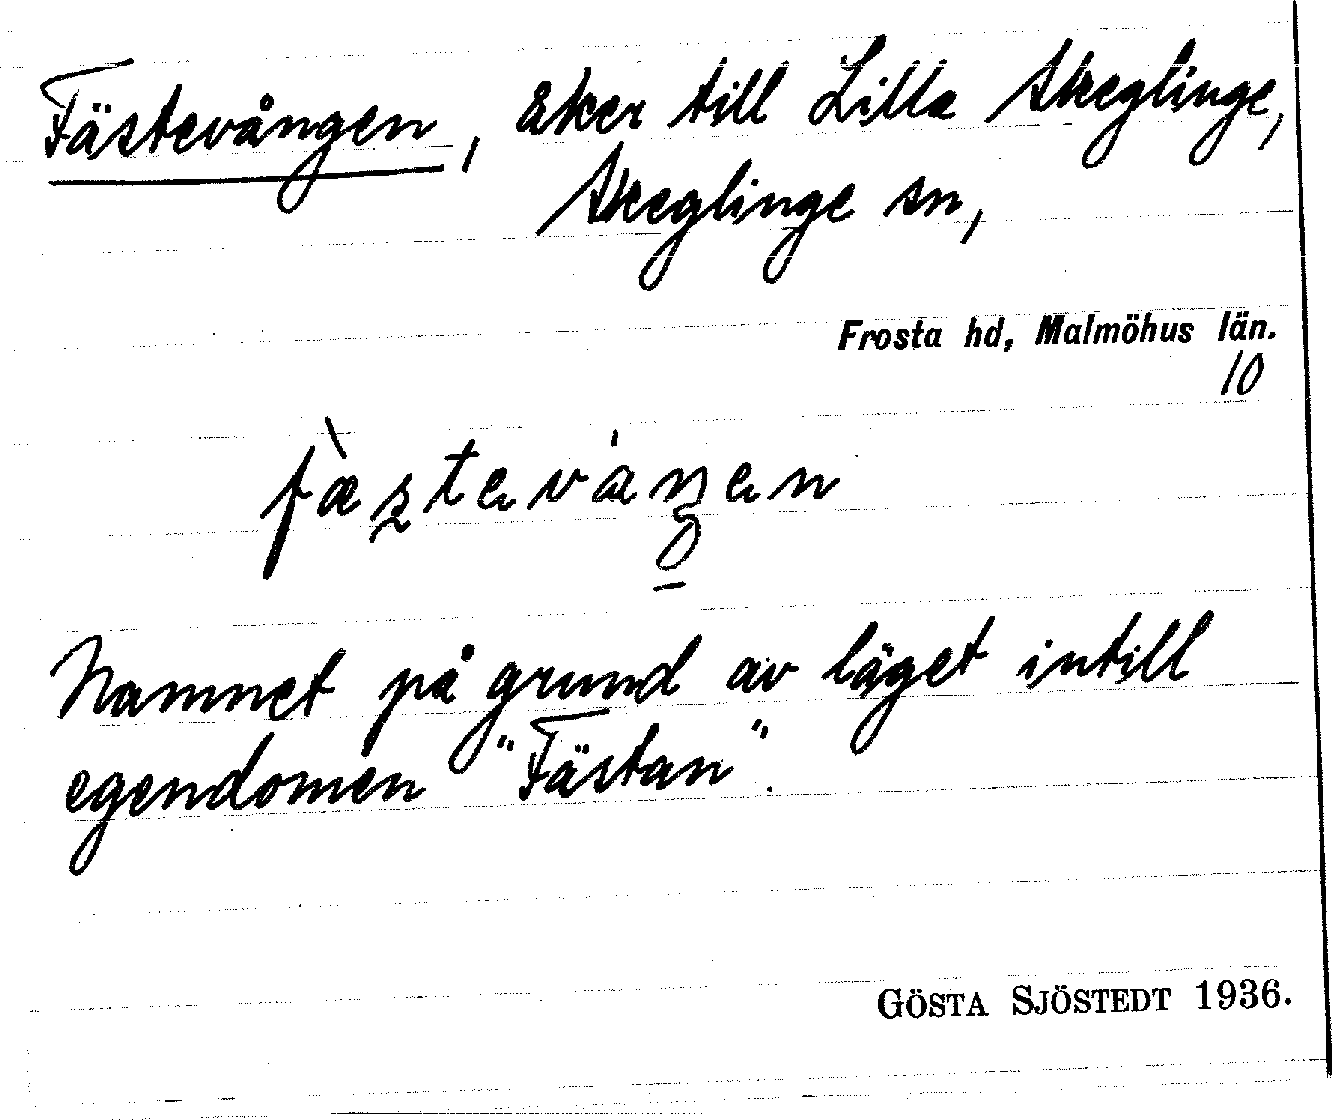 Fästevången, åker till Lilla Skeglinge,
Skeglinge sn,
Frosta hd, Malmöhus län.
10
Namnet på grund av läget intill
egendomen "Fästan".
GÖSTA SJÖSTEDT 1936.